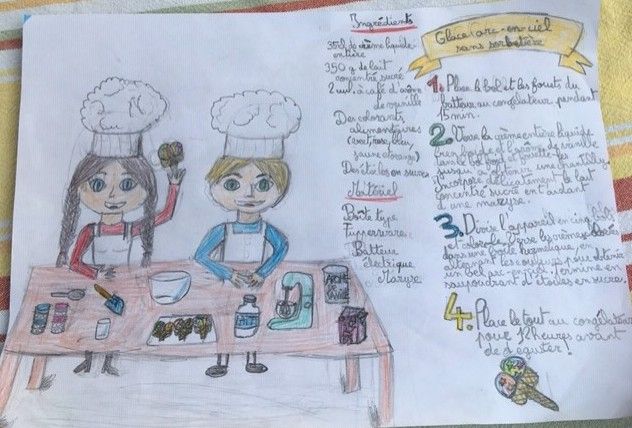 Ingrédients
35cl de crème liquide
entière
350 g de lait
concentré sucré
2 cuil à café d'arôme
de vanille
Des colorants
alimentaires
(vert, rose, bleu,
jaune orange)
Des étoiles en sucre
Matériel
Boîte type
Tupperware
Batteur
électrique
Maryse
Glace arc-en-ciel
sans sorbetière
1. Place le bol et les fouets du
batteur au congélateur pendant
15 min.
2. Verse la crème entière liquide
très froide et l'arôme de vanille
dans le bol froid et fouette-les
jusqu'à obtenir une chantilly.
Incorpore délicatement le lait
concentré sucré en t'aidant
d'une maryse.
3. Divise l'appareil en cinq bols
et colore-les. Verse les crèmes
dans une boîte hermétique, en
alternant les couleurs pour obtenir
un bel arc-en-ciel. Termine en
saupoudrant d'étoiles en sucre.
4. Place le tout au congélateur
pour 12 heures avant
de déguster!